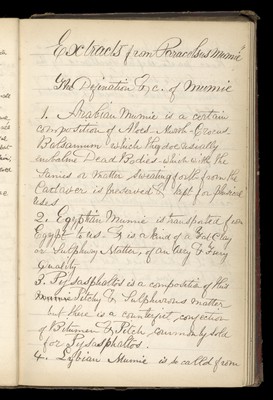 Extracts from Paracelsus Mumie
The Defination &c. of Mumie
1. Arabian Mumie is a certain
composition of Aloes - Mirrh - Crocus
Balsamum which they do usually
imbalme Dead Bodies - which with the
Stemies or Matter sweating forth from the
Cadaver is preserved & kept for physical
uses
2. Egyptian Mumie is transported from
Egypt to us. & is a kind of a Fat Clay
or Sulphury Matter, of an Aery & Firey
Quality
3. Pissasphaltos is a composition of this
Pitchy & Sulphurous matter
but there is a counterfeit, confection
of Bitumen & Pitch, commonly sold
for Pissasphaltos.
4. Lybian Mumie is so called from